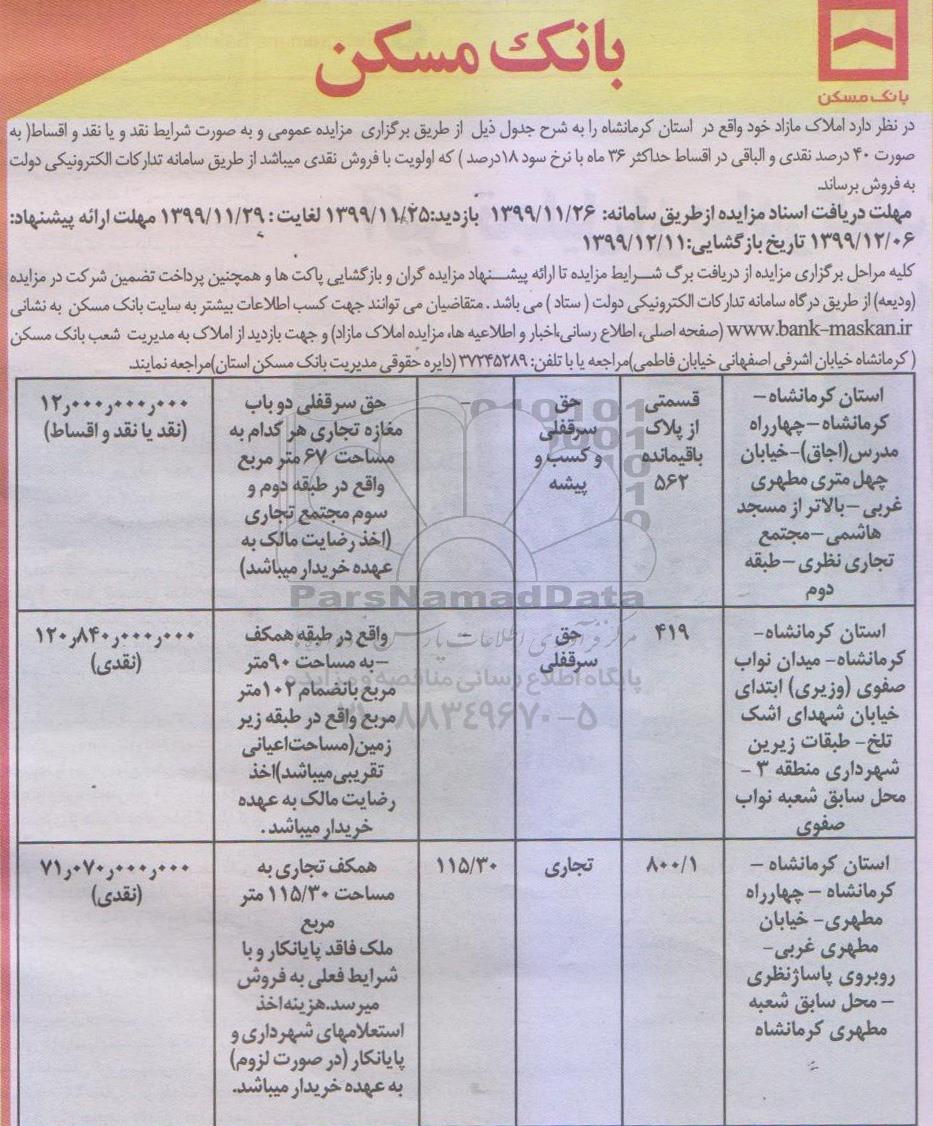 بانک مسکن
بانک مسکن
در نظر دارد املاک مازاد خود واقع در استان کرمانشاه را به شرح جدول ذیل از طریق برگزاری مزایده عمومی و به صورت شرایط نقد و یا نقد و اقساط( به
صورت ۴۰ درصد نقدی و الباقی در اقساط حداکثر ۳۶ ماه با نرخ سود ۱۸درصد ) که اولویت با فروش نقدی میباشد از طریق سامانه تدارکات الکترونیکی دولت
به فروش برساند.
مهلت دریافت اسناد مزایده ازطریق سامانه: ۱۳۹۹/۱۱/۲۶ بازدید:۱۳۹۹/۱۱/۲۵ لغایت : ۱۳۹۹/۱۱/۲۹ مهلت ارائه پیشنهاد:
۱۳۹۹/۱۲/۰۶ تاریخ بازگشایی:۱۳۹۹/۱۲/۱۱
کلیه مراحل برگزاری مزایده از دریافت برگ شرایط مزایده تا ارائه پیشنهاد مزایده گران و بازگشایی پاکت ها و همچنین پرداخت تضمین شرکت در مزایده
(ودیعه) از طریق درگاه سامانه تدارکات الکترونیکی دولت ( ستاد ) می باشد . متقاضیان می توانند جهت کسب اطلاعات بیشتر به سایت بانک مسکن به نشانی
www.bank-maskan.ir (صفحه اصلی، اطلاع رسانی،اخبار و اطلاعیه ها، مزایده املاک مازاد) و جهت بازدید از املاک به مدیریت شعب بانک مسکن
( کرمانشاه خیابان اشرفی اصفهانی خیابان فاطمی)مراجعه یا با تلفن: ۳۷۲۴۵۲۸۹ (دایره حقوقی مدیریت بانک مسکن استان)مراجعه نمایند.
استان کرمانشاه –
کرمانشاه –چهارراه
مدرس(اجاق)-خیابان
چهل متری مطهری
غربی –بالاتر از مسجد
هاشمی –مجتمع
تجاری نظری –طبقه
دوم
قسمتی
از پلاک
باقیمانده
۵۶۲
حق
سرقفلی
و کسب و
پیشه
-
حق سرقفلی دو باب
مغازه تجاری هر کدام به
مساحت ۶۷ متر مربع
واقع در طبقه دوم و
سوم مجتمع تجاری
(اخذ رضایت مالک به
عهده خریدار میباشد)
۱۲٫۰۰۰٫۰۰۰٫۰۰۰
(نقد یا نقد و اقساط)
استان کرمانشاه–
کرمانشاه- میدان نواب
صفوی (وزیری) ابتدای
خیابان شهدای اشک
تلخ- طبقات زیرین
شهرداری منطقه ۳ -
محل سابق شعبه نواب
صفوی
۴۱۹
حق
سرقفلی
-
واقع در طبقه همکف
–به مساحت ۹۰متر
مربع بانضمام ۱۰۲متر
مربع واقع در طبقه زیر
زمین(مساحت اعیانی
تقریبی میباشد)اخذ
رضایت مالک به عهده
خریدار میباشد .
۱۲۰٫۸۴۰٫۰۰۰٫۰۰۰
(نقدی)
استان کرمانشاه –
کرمانشاه – چهارراه
مطهری- خیابان
مطهری غربی-
روبروی پاساژنظری
– محل سابق شعبه
مطهری کرمانشاه
۸۰۰/۱
تجاری
۱۱۵/۳۰
همکف تجاری به
مساحت ۱۱۵/۳۰ متر
مربع
ملک فاقد پایانکار و با
شرایط فعلی به فروش
میرسد.هزینه اخذ
استعلامهای شهرداری و
پایانکار (در صورت لزوم)
به عهده خریدار میباشد.
۷۱٫۰۷۰٫۰۰۰٫۰۰۰
(نقدی)
ParsNamadData
پایگاه اطلاع رسانی مناقصه و مزایده